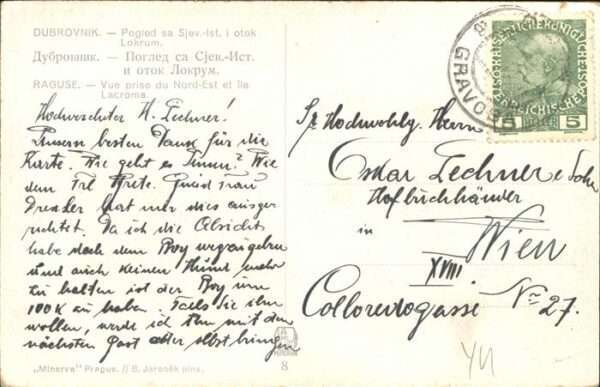 DUBROVNIK. — Pogled sa Sjev.-Ist. i otok
Lokrum.
Дубровник. — Поглед са Сјев.-Ист.
и оток Локрум.
RAGUSE. — Vue prise du Nord-Est et île
Lacroma.
Hochverehrter H. Lechner!
besten Dank für die
Karte. Wie geht es Ihnen? Wie
dem Frl Grete.
Dresler hat mir dies ausge
richtet. Da ich die Absicht
habe doch dem Boy wegzugeben
und auch keinen Hund mehr
zu halten ist der Boy um
100K zu haben. Falls Sie ihn
wollen, werde ich ihn mit den
nächsten Post aber selbst bringen
„Minerva" Prague. // B. Jaroněk pinx.
8
GRAVOSA
KAISERLICHE KÖNIGLICHE
ÖSTERREICHISCHE
5 HELLER 5
Sr Hochwohlg. Herrn
Oskar Lechner & Sohn
Hofbuchhänder
in
Wien
XVIII.
Colloredogasse No 27.